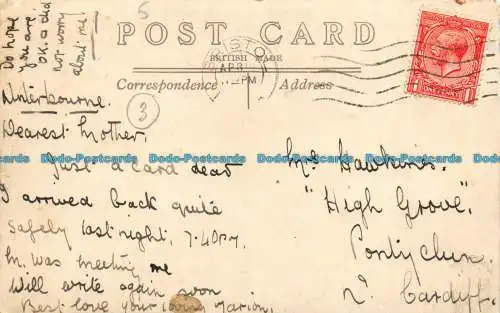 5
Do hope
you are
O.K. & did
not worry
about me!
POST CARD
BRISTOL
BRITISH MADE
AP 3
PM
Correspondence
Address
POSTAGE
ONE PENNY
3
Winterbourne.
Dearest Mother,
Just a card dear
I arrived back quite
safely last night, 7.40 P.M.
M. was meeting me
Will write again soon
Best love your loving Marion.
Mrs Hawkins.
"High Grove".
Pontyclun.
Nr Cardiff.
Dodo-Postcards Dodo-Postcards Dodo-Postcards Dodo-Postcards